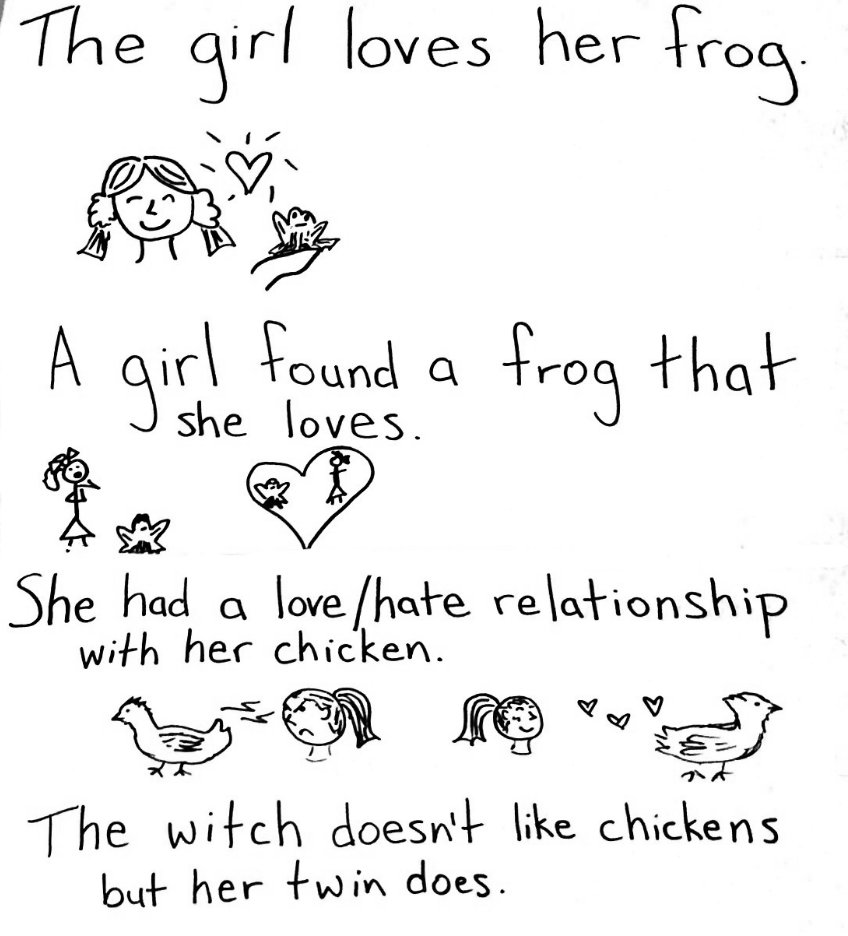 The girl loves her frog.
A girl found a frog that
she loves.
She had a love/hate relationship
with her chicken.
The witch doesn't like chickens
but her twin does.